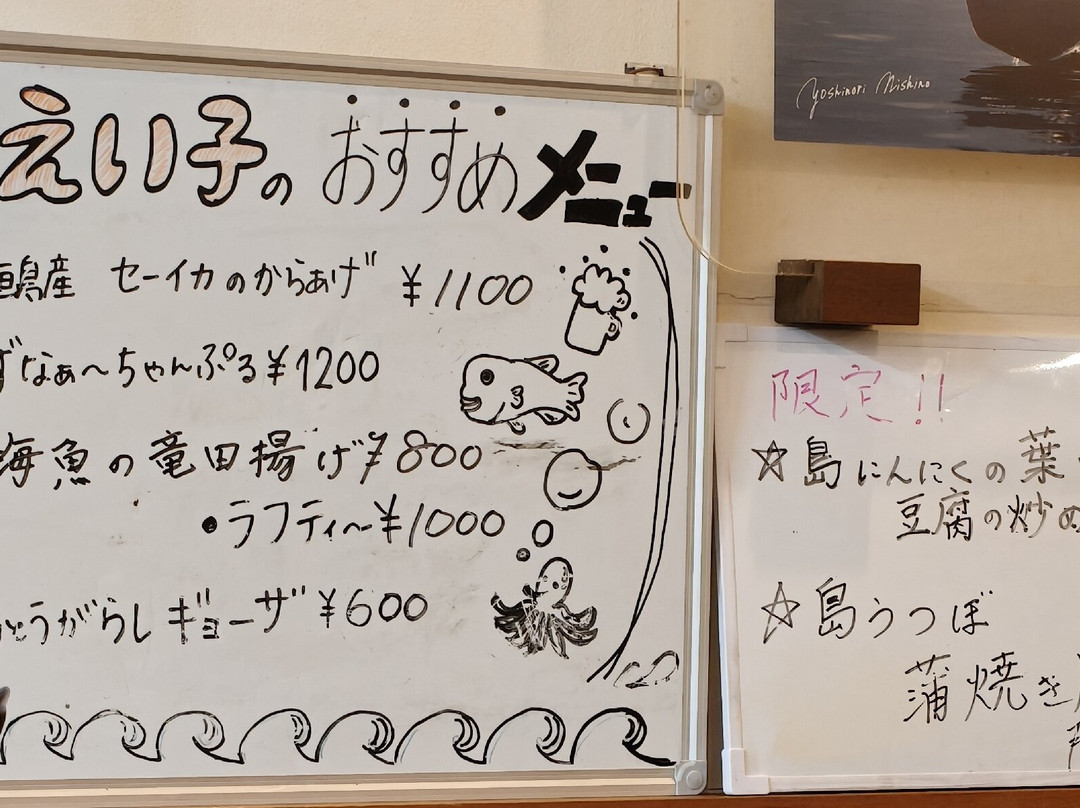 えい子の おすすめ メニュー
垣島産 セーイカのからあげ ¥1100
なぁ〜ちゃんぷる ¥1200
海魚の竜田揚げ ¥800
•ラフティ〜¥1000
とうがらし ギョーザ ¥600
Yoshinori Nishino
限定!!
☆島にんにくの葉
豆腐の炒め
☆島うつぼ
蒲焼き